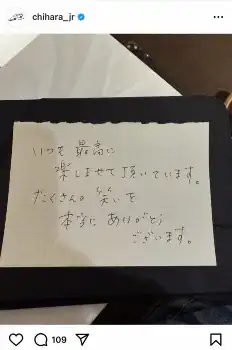 chihara_jr
いつも 最高に
楽しませて頂いています。
たくさんの 笑いを
本当に ありがとう
ございます。
109